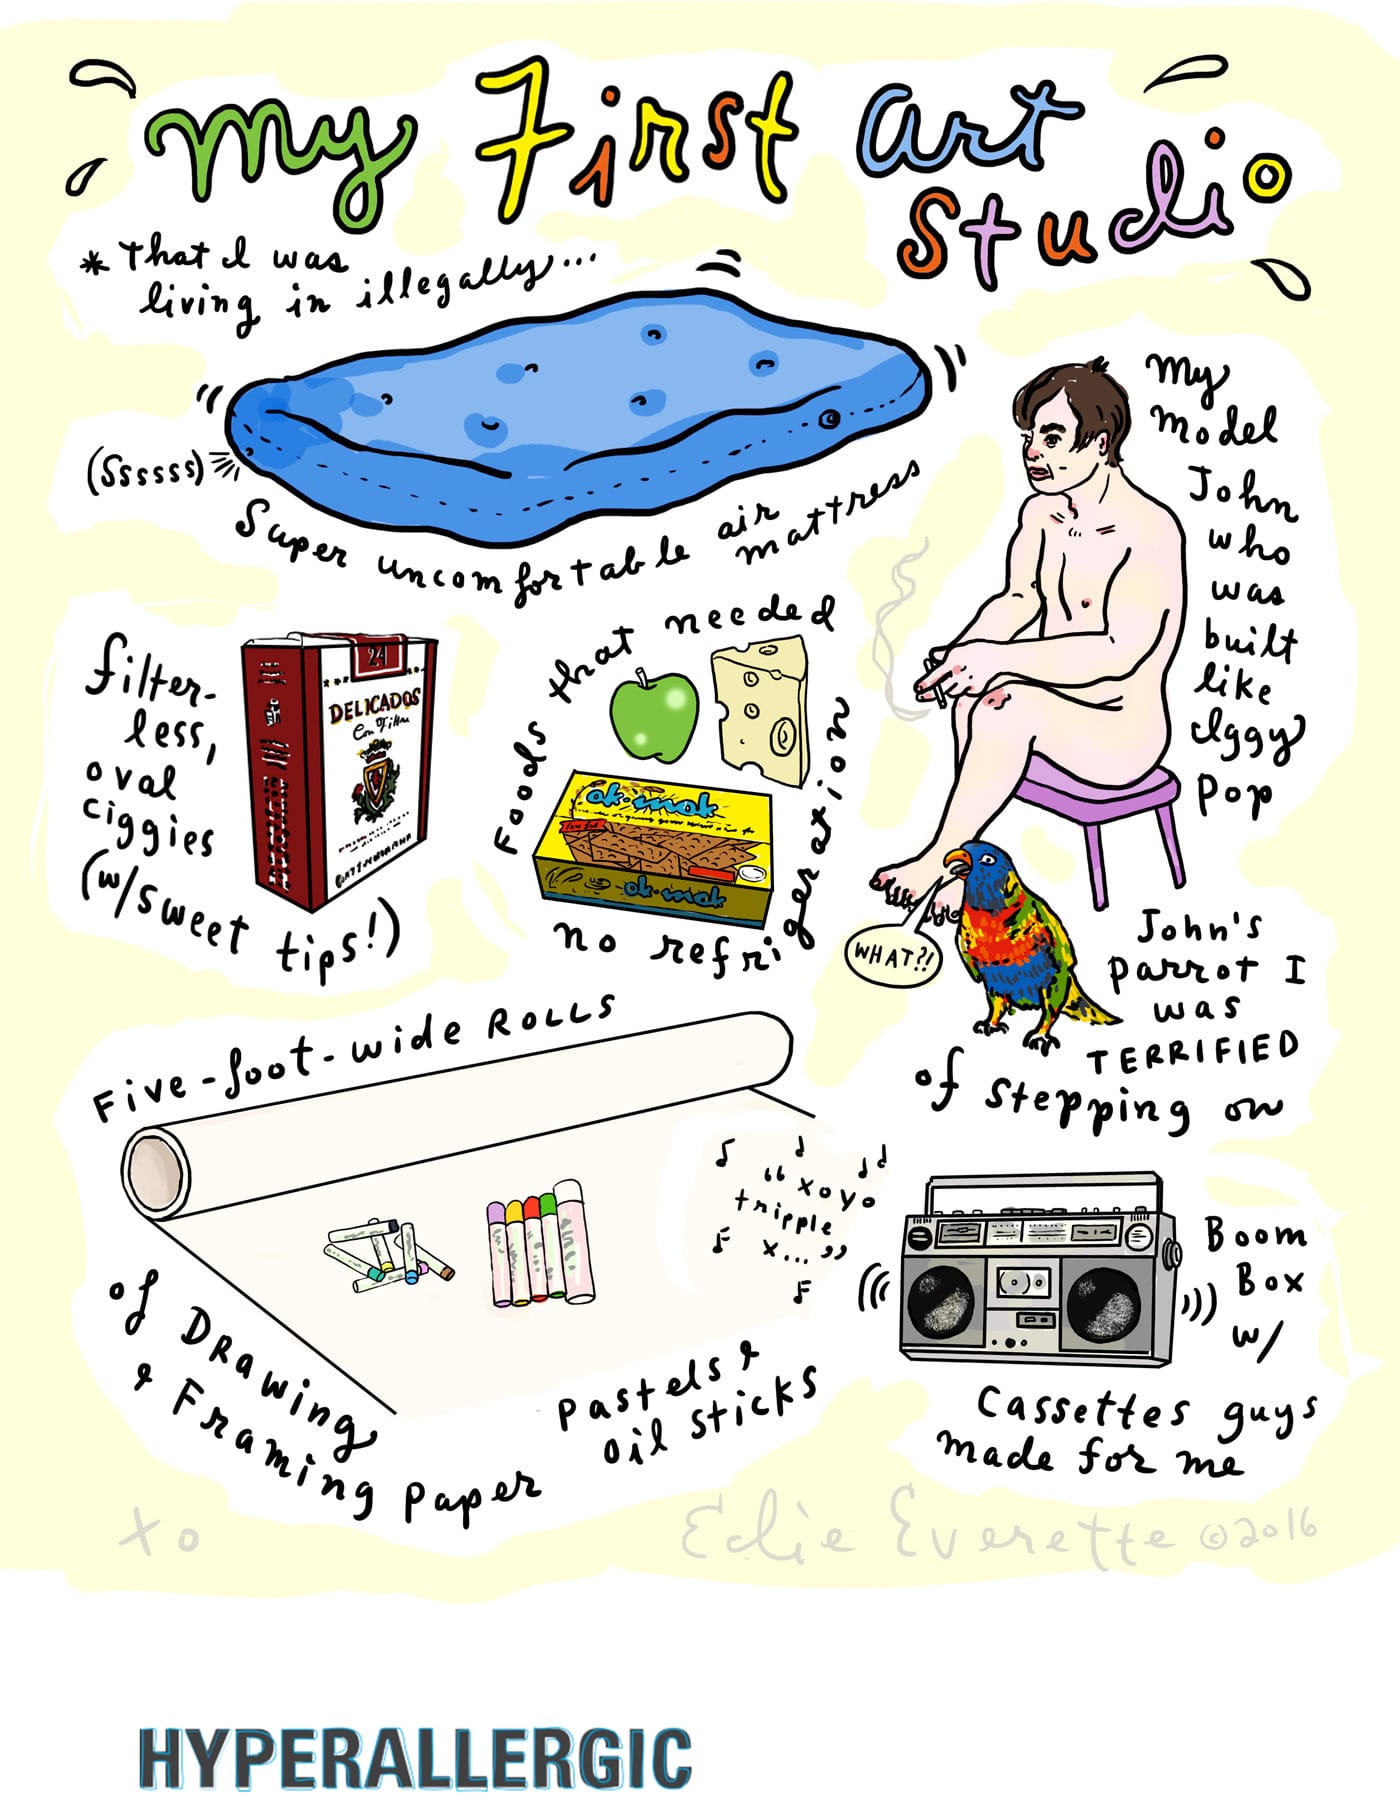 My First Art
Studio
* that I was
living in illegally...
(Ssssss)
Super uncomfortable air
mattress
My
Model
John
who
was
built
like
Iggy
Pop
filter-
less,
oval
ciggies
(w/sweet tips!)
24
DELICADOS
Con Filtro
Foods that needed
no refrigeration
ak-mak
ak-mak
WHAT?!
John's
parrot I
was
TERRIFIED
of stepping on
Five-foot-wide ROLLS
of Drawing
& Framing Paper
Pastels &
oil sticks
"xoyo
tripple
x..."
Boom
Box
w/
Cassettes guys
made for me
xo
Edie Everette ©2016
HYPERALLERGIC